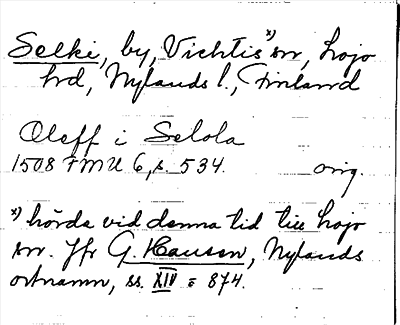 Selki, by, Vichtis *) sn, Lojo
hrd, Nylands l., Finland
Oleff i Selola
1508 FMU 6, s. 534. orig.
*) hörde vid denna tid till Lojo
sn. Jfr G. Hausen, Nylands
ortnamn, ss. XIV o 874.